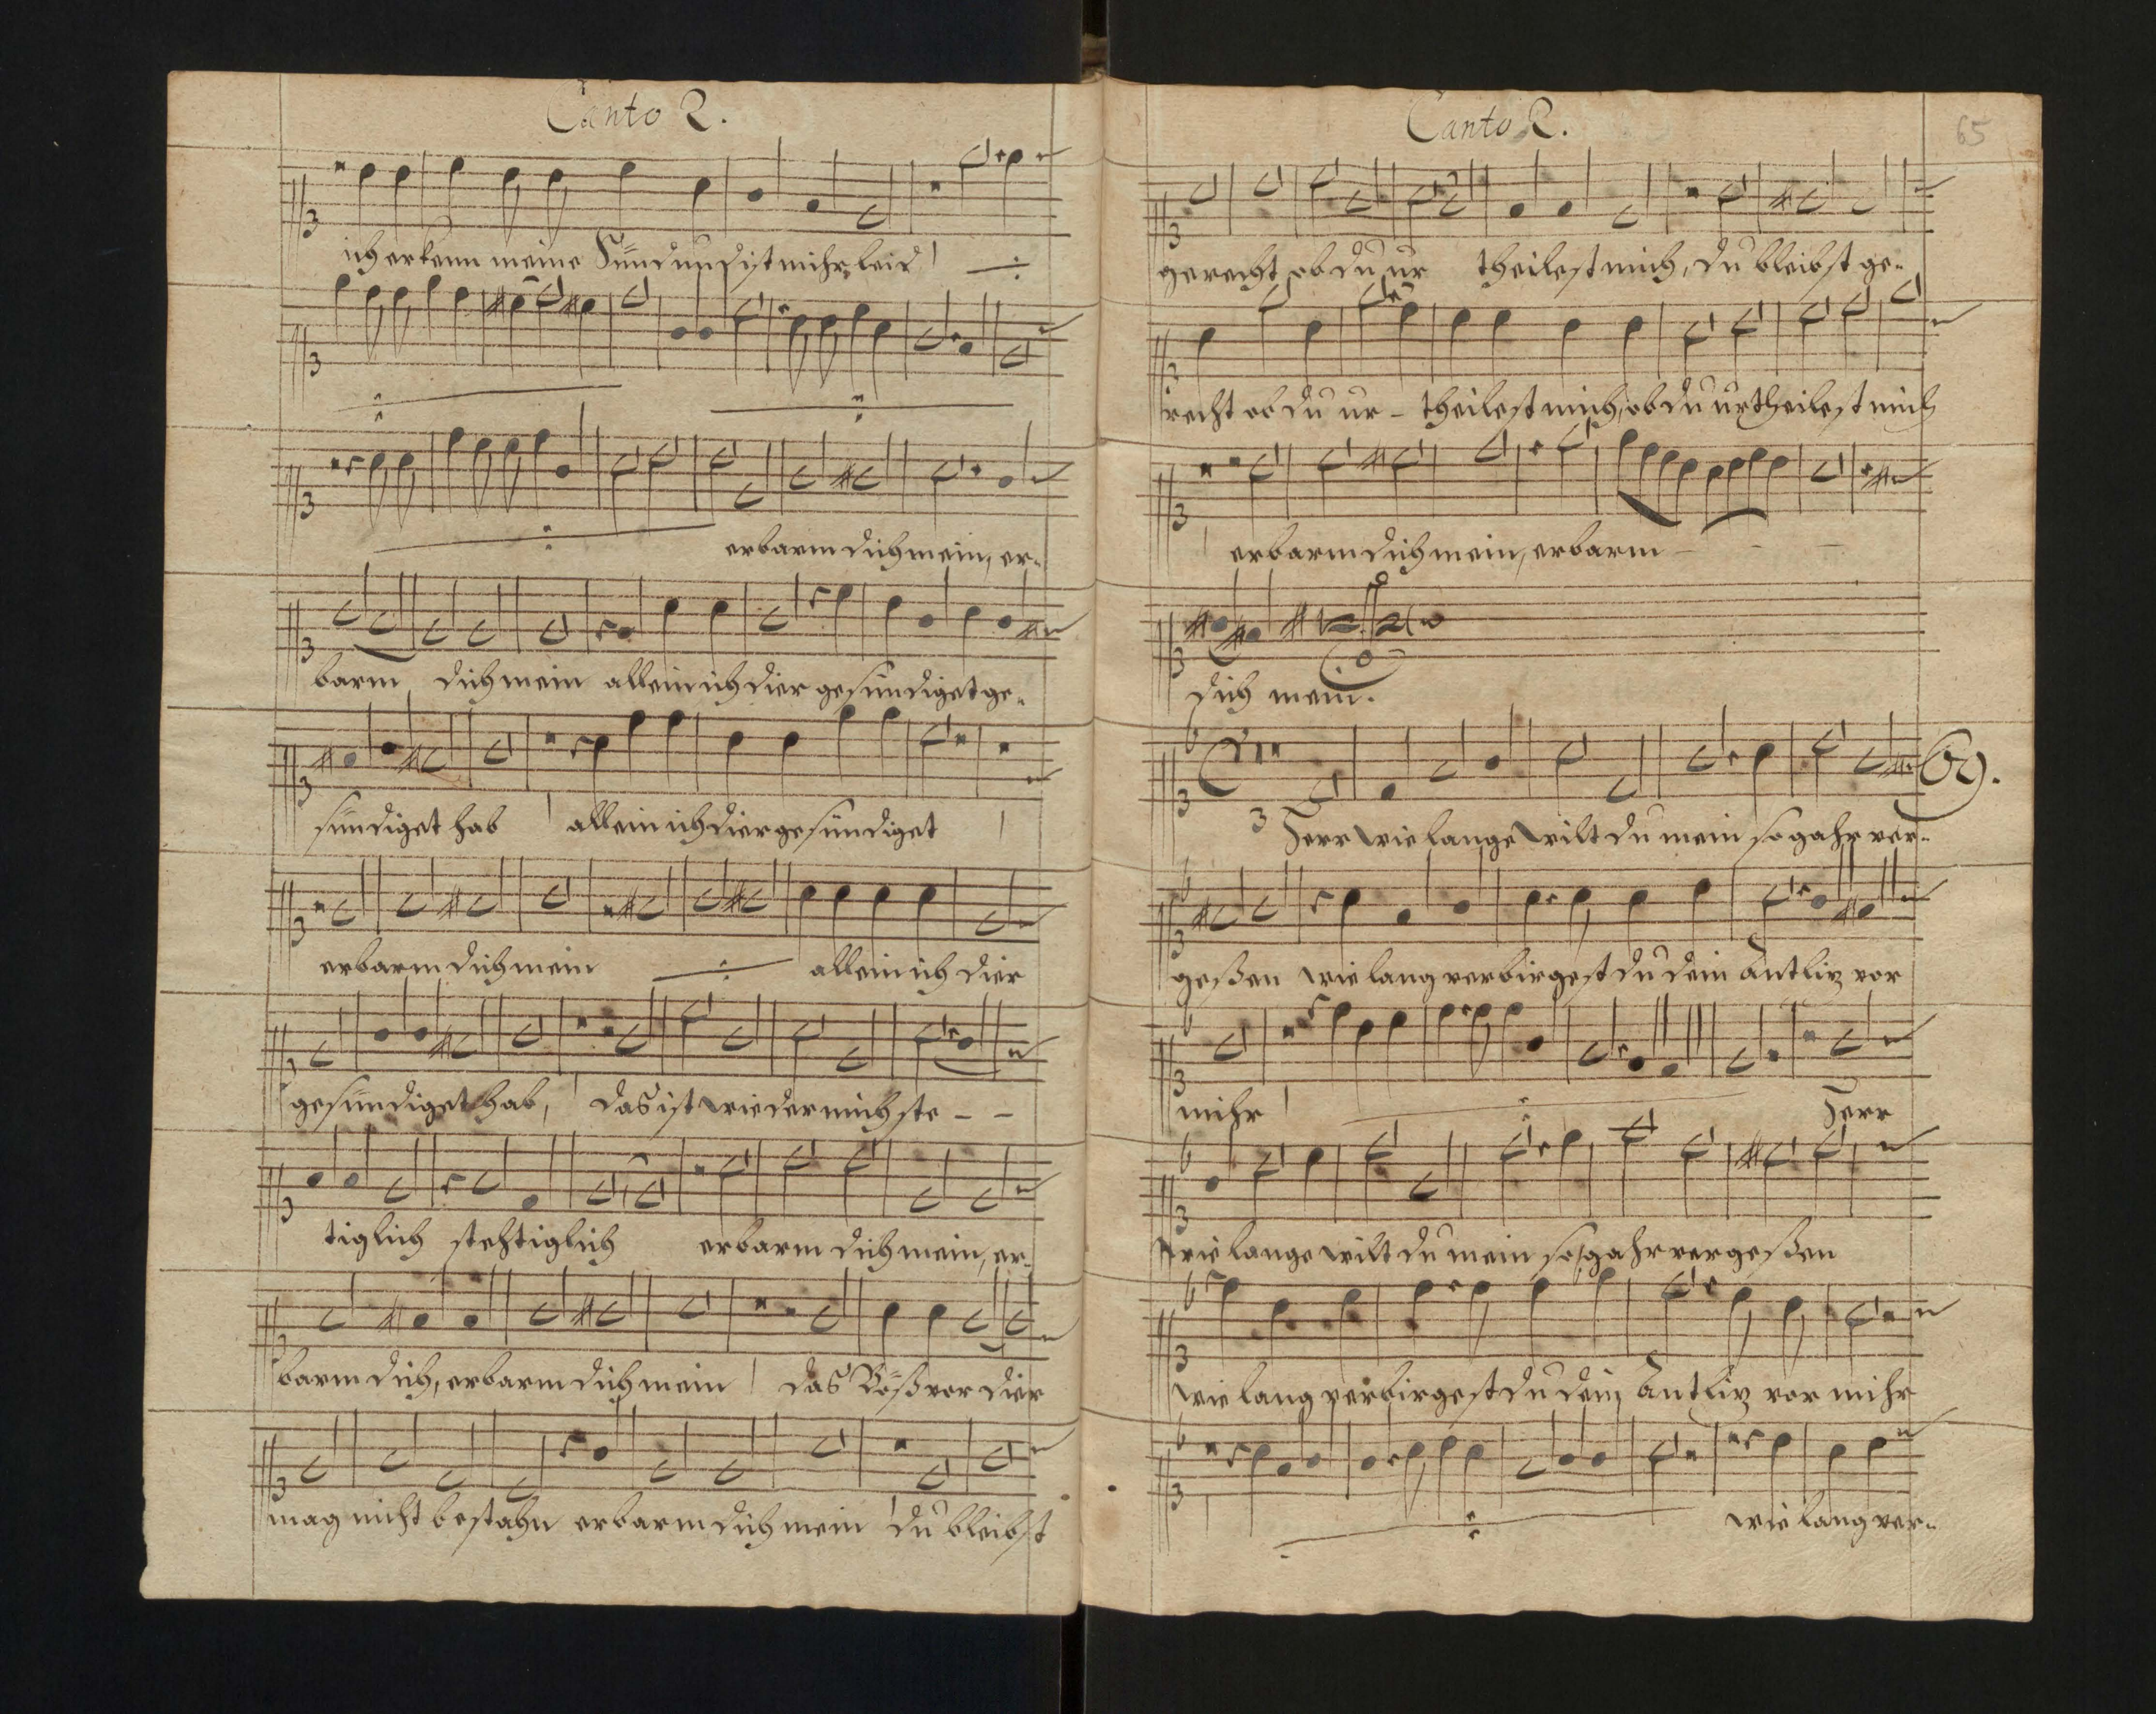 Canto 2.
ich erkenn meine Sünd und ist mihr leid
erbarm dich mein, er-
barm dich mein allein ich dier gesündiget ge-
sündiget hab allein ich dier gesündiget
erbarm dich mein allein ich dier
gesündiget hab, das ist wieder mich ste - -
tiglich stehtiglich erbarm dich mein, er-
barm dich, erbarm dich mein das Böß vor dier
mag nicht bestahn erbarm dich mein du bleibst
Canto 2.
65
gerecht ob du ur theilest mich, du bleibst ge-
recht ob du ur - theilest mich, ob du urtheilest mich
erbarm dich mein, erbarm - - -
dich mein.
69.
3
Herr wie lange wilt du mein so gahr ver-
geßen wie lang verbirgest du dein Antliz vor
mihr Herr
wie lange wilt du mein so gahr vergeßen
wie lang verbirgest du dein Antliz vor mihr
wie lang ver-